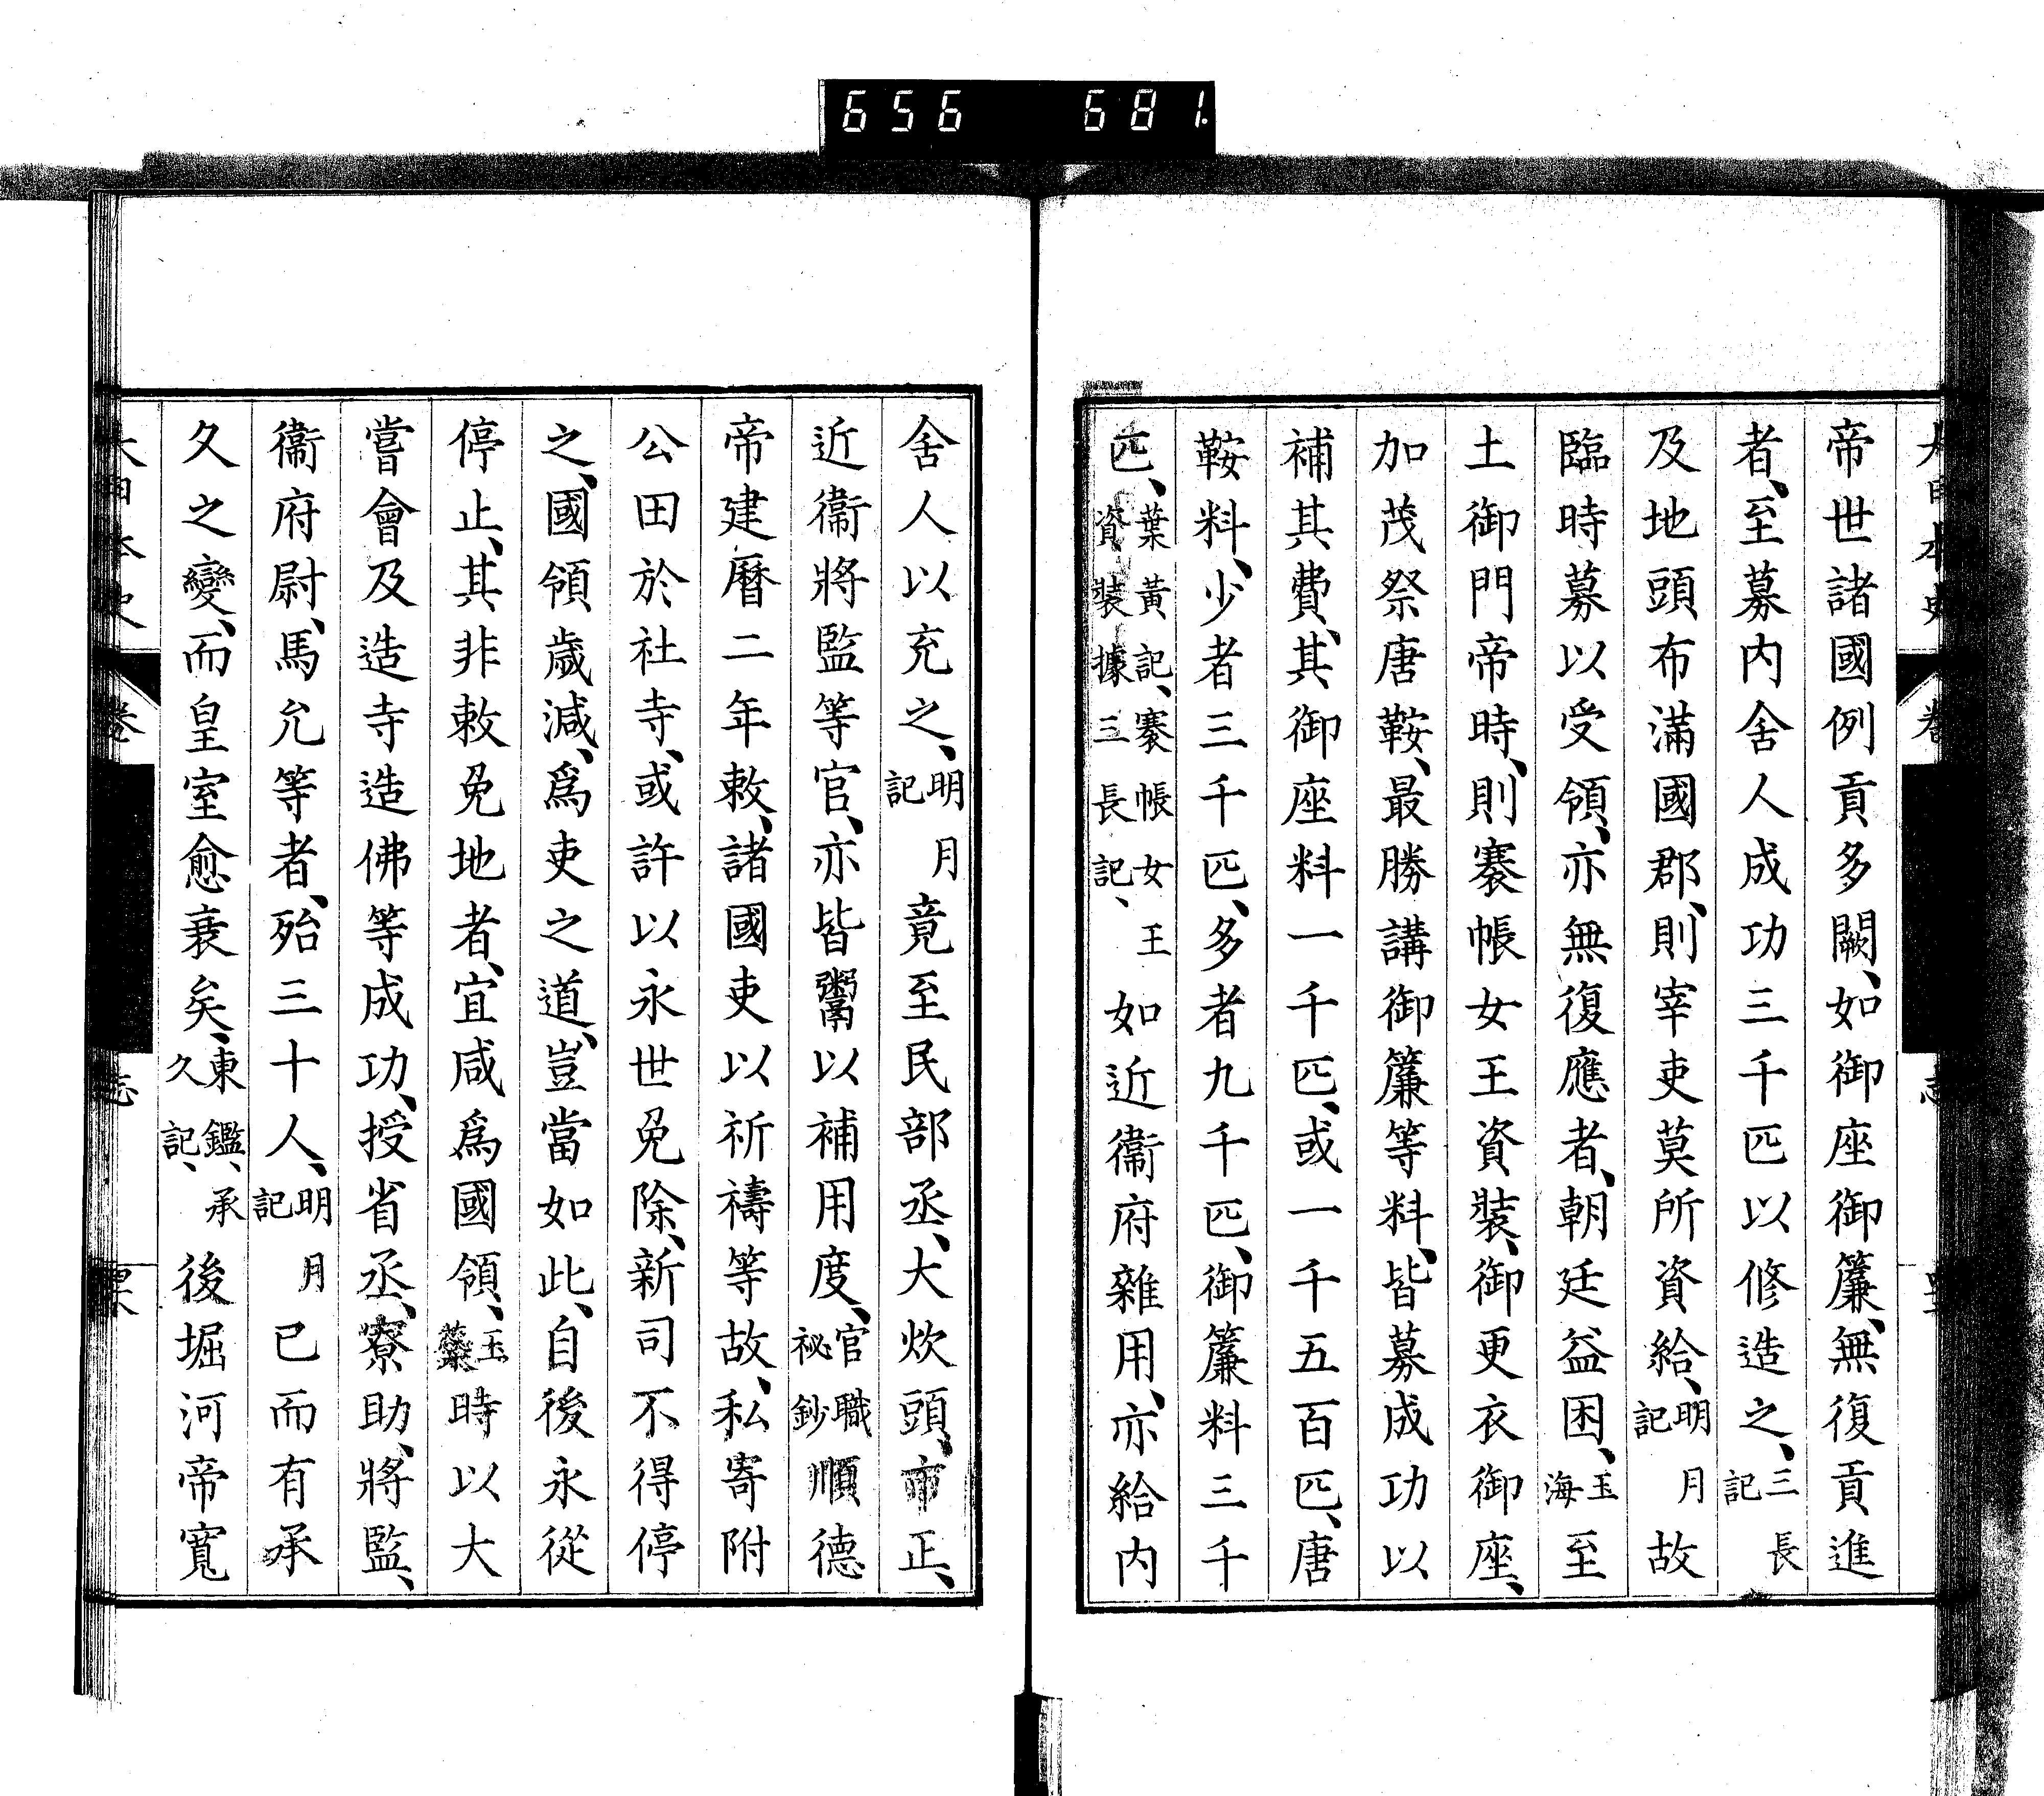 656 681.
帝世諸國例貢多闕、如御座御簾、無復貢進
者、至募内舍人成功三千匹以修造之、三長記
及地頭布滿國郡、則宰吏莫所資給、明月記故
臨時募以受領、亦無復應者、朝廷益困、玉海至
土御門帝時、則褰帳女王資裝、御更衣御座、
加茂祭唐鞍、最勝講御簾等料、皆募成功以
補其費、其御座料一千匹、或一千五百匹、唐
鞍料、少者三千匹、多者九千匹、御簾料三千
匹、葉黃記、褰帳女王資裝據三長記、如近衞府雜用、亦給内
舍人以充之、明月記竟至民部丞、大炊頭、市正、
近衞將監等官、亦皆鬻以補用度、官職祕鈔順德
帝建曆二年敕、諸國吏以祈禱等故、私寄附
公田於社寺、或許以永世免除、新司不得停
之、國領歲減、爲吏之道、豈當如此、自後永從
停止、其非敕免地者、宜咸爲國領、玉蘂時以大
嘗會及造寺造佛等成功、授省丞、寮助、將監、
衞府尉、馬允等者、殆三十人、明月記已而有承
久之變、而皇室愈衰矣、東鑑、承久記、後堀河帝寬
大日本史 卷 志